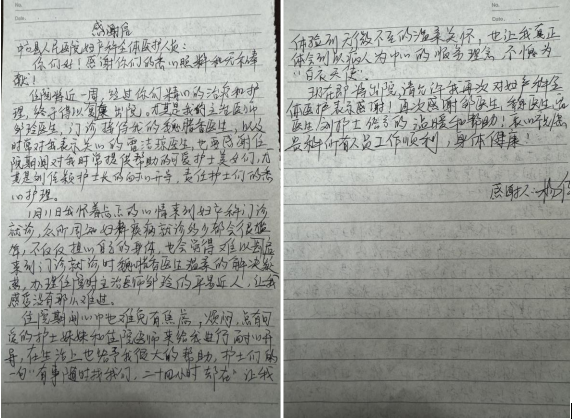 No.
Date.
感谢信
县人民医院妇产科全体医护人员:
你们好!感谢你们的悉心照料和无私奉
献!
住院将近一周,经过你们精心的治疗和护
理,终于得以 出院。尤其是我的主治医师
医生,门诊接待我的 医生,以及
时常对我表示关心的 医生,也要感谢住
院期间对我时常提供帮助的可爱护士美女们,尤
其是刘 护士长的耐心开导,责任护士们的悉
心护理。
1月11日我怀着忐忑的心情来到妇产科门诊
就诊,众所周知妇科疾病就诊的 都会很
,不仅仅担心自己的身体,也会觉得难以
来到门诊就诊时 医生温柔的解决
,办理住院时主治医师 的平易近人,让我
感觉没有那么难过。
住院期间心中也难免有焦虑,烦闷,
爱的护士妹妹和住院医师来给我进行耐心开
导,在生活上也给予我很大的帮助,护士们的
一句"有事随时找我们,二十四小时都在"让我
No.
Date.
体验到无微不至的温柔关怀,也让我真正
体会到以病人为中心的服务理念,不愧为
"白衣天使"。
现在即将出院,请允许我再次对妇产科全
体医护表示感谢!再次感谢 医生,
医生, 护士给予的温暖和帮助!衷心祝愿
贵科所有人员工作顺利,身体健康!
感谢人:杨